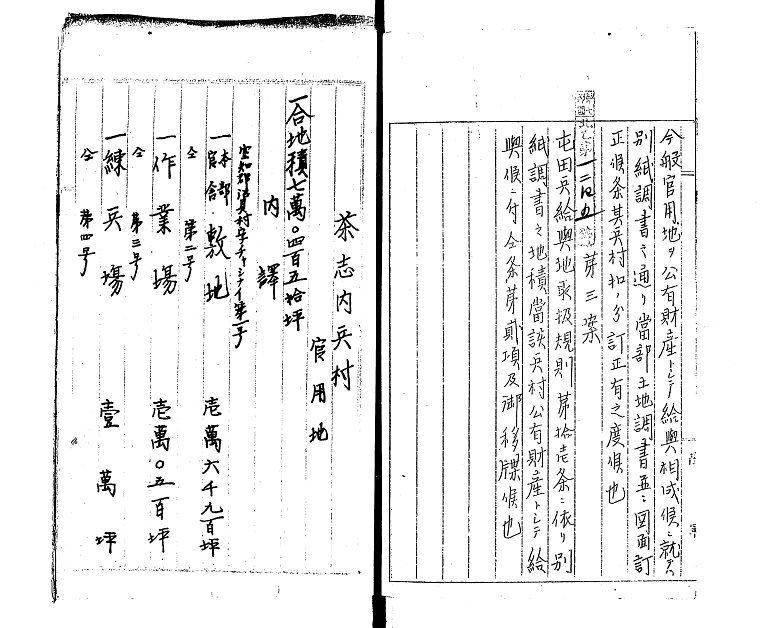 今般官用地ヲ公有財産トシテ給與相成候ニ就テハ
別紙調書之通リ當部土地調書並ニ図面訂
正候条其兵村扣ノ分訂正有之度候也
第三案
屯田兵給與地取扱規則第拾壱条ニ依リ別
紙調書之地積當該兵村公有財産トシテ給
與候ニ付仝条第貳項及御移牒候也
茶志内兵村
官用地
一合地積七萬〇四百五拾坪
内譯
空知郡沼貝村字チャシナイ第一号
一本部官舎敷地 壱萬六千九百坪
仝 第二号
一作業場 壱萬〇五百坪
仝 第三号
一練兵場 壹萬坪
仝 第四号